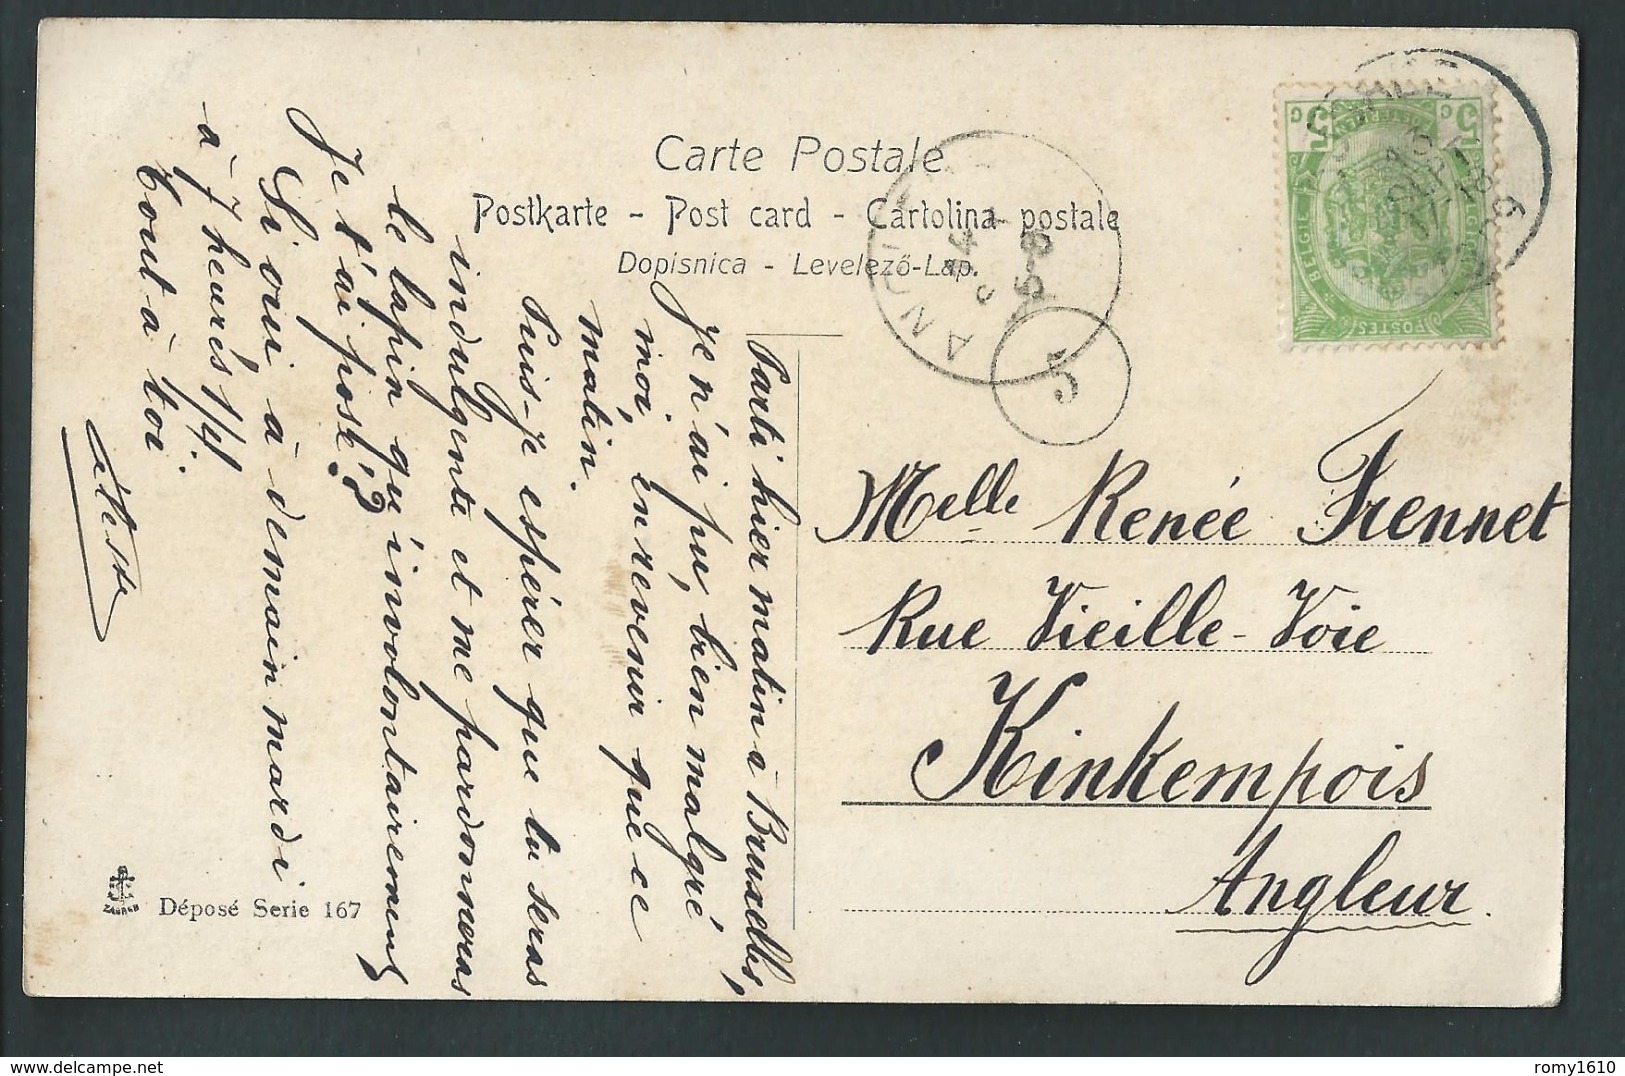 Carte Postale
Postkarte - Post card - Cartolina postale
Dopisnica - Levelező-Lap.
Parti hier matin à Bruxelles,
je n'ai pu, bien malgré
moi, en revenir que ce
matin.
Puis-je espérer que tu seras
indulgente et me pardonneras
le lapin qu'involontairement
Je t'ai posé!?
Si oui à demain mardi
à 7 heures 1/4.
Tout à toi.
Melle Renée Frennet
Rue Vieille-Voie
Kinkempois
Angleur.
5
C 5 5 C
BELGIE
POSTES
Déposé Serie 167
romy1610